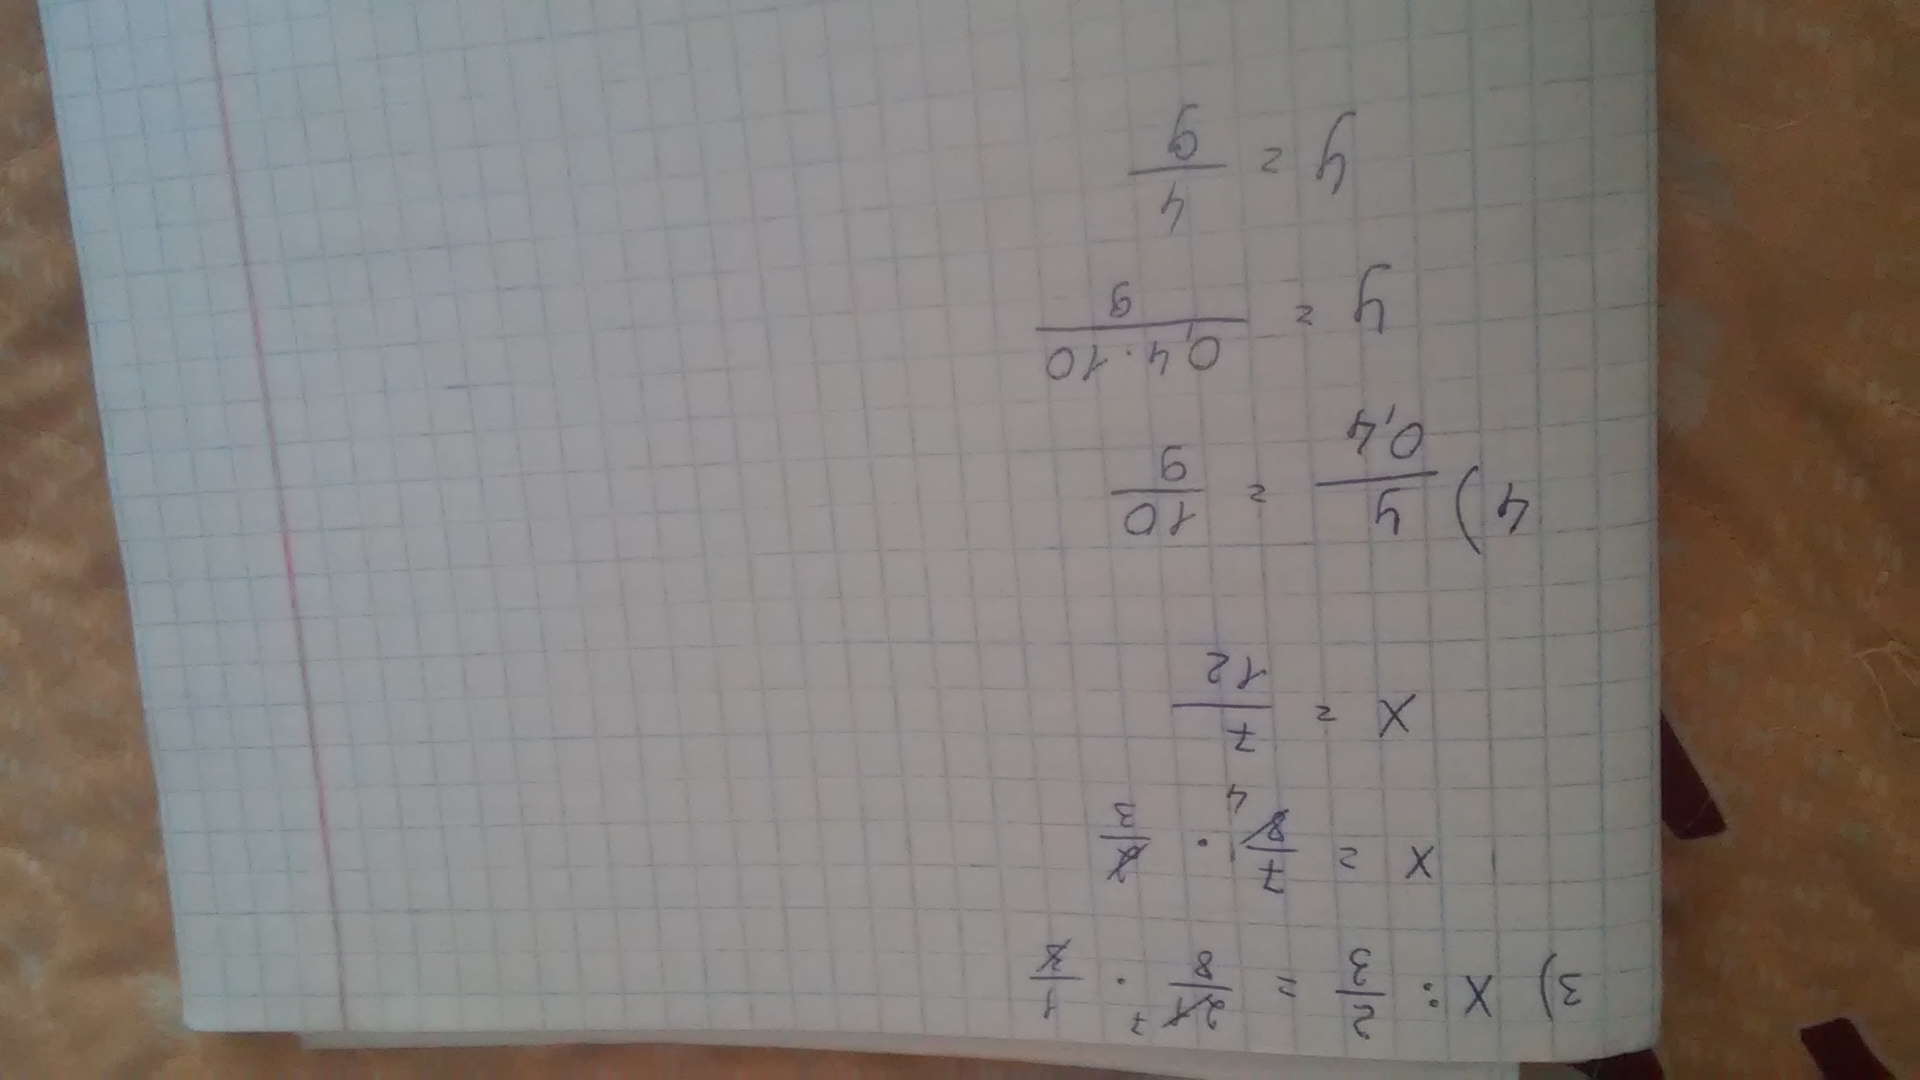 3) x : 2/3 = 21/8 · 1/3 7
x = 7/8 · 2/3
4
x = 7/12
4) y/0,4 = 10/9
y = 0,4 · 10/9
y = 4/9